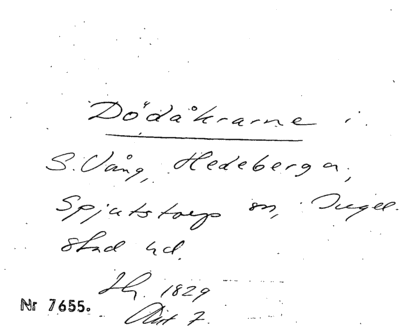 Dödåkrarne i
S. Vång, Hedeberga,
Spjutstorp sn, Ingel-
stad hd.
1829
Akt 7.
Nr 7655.